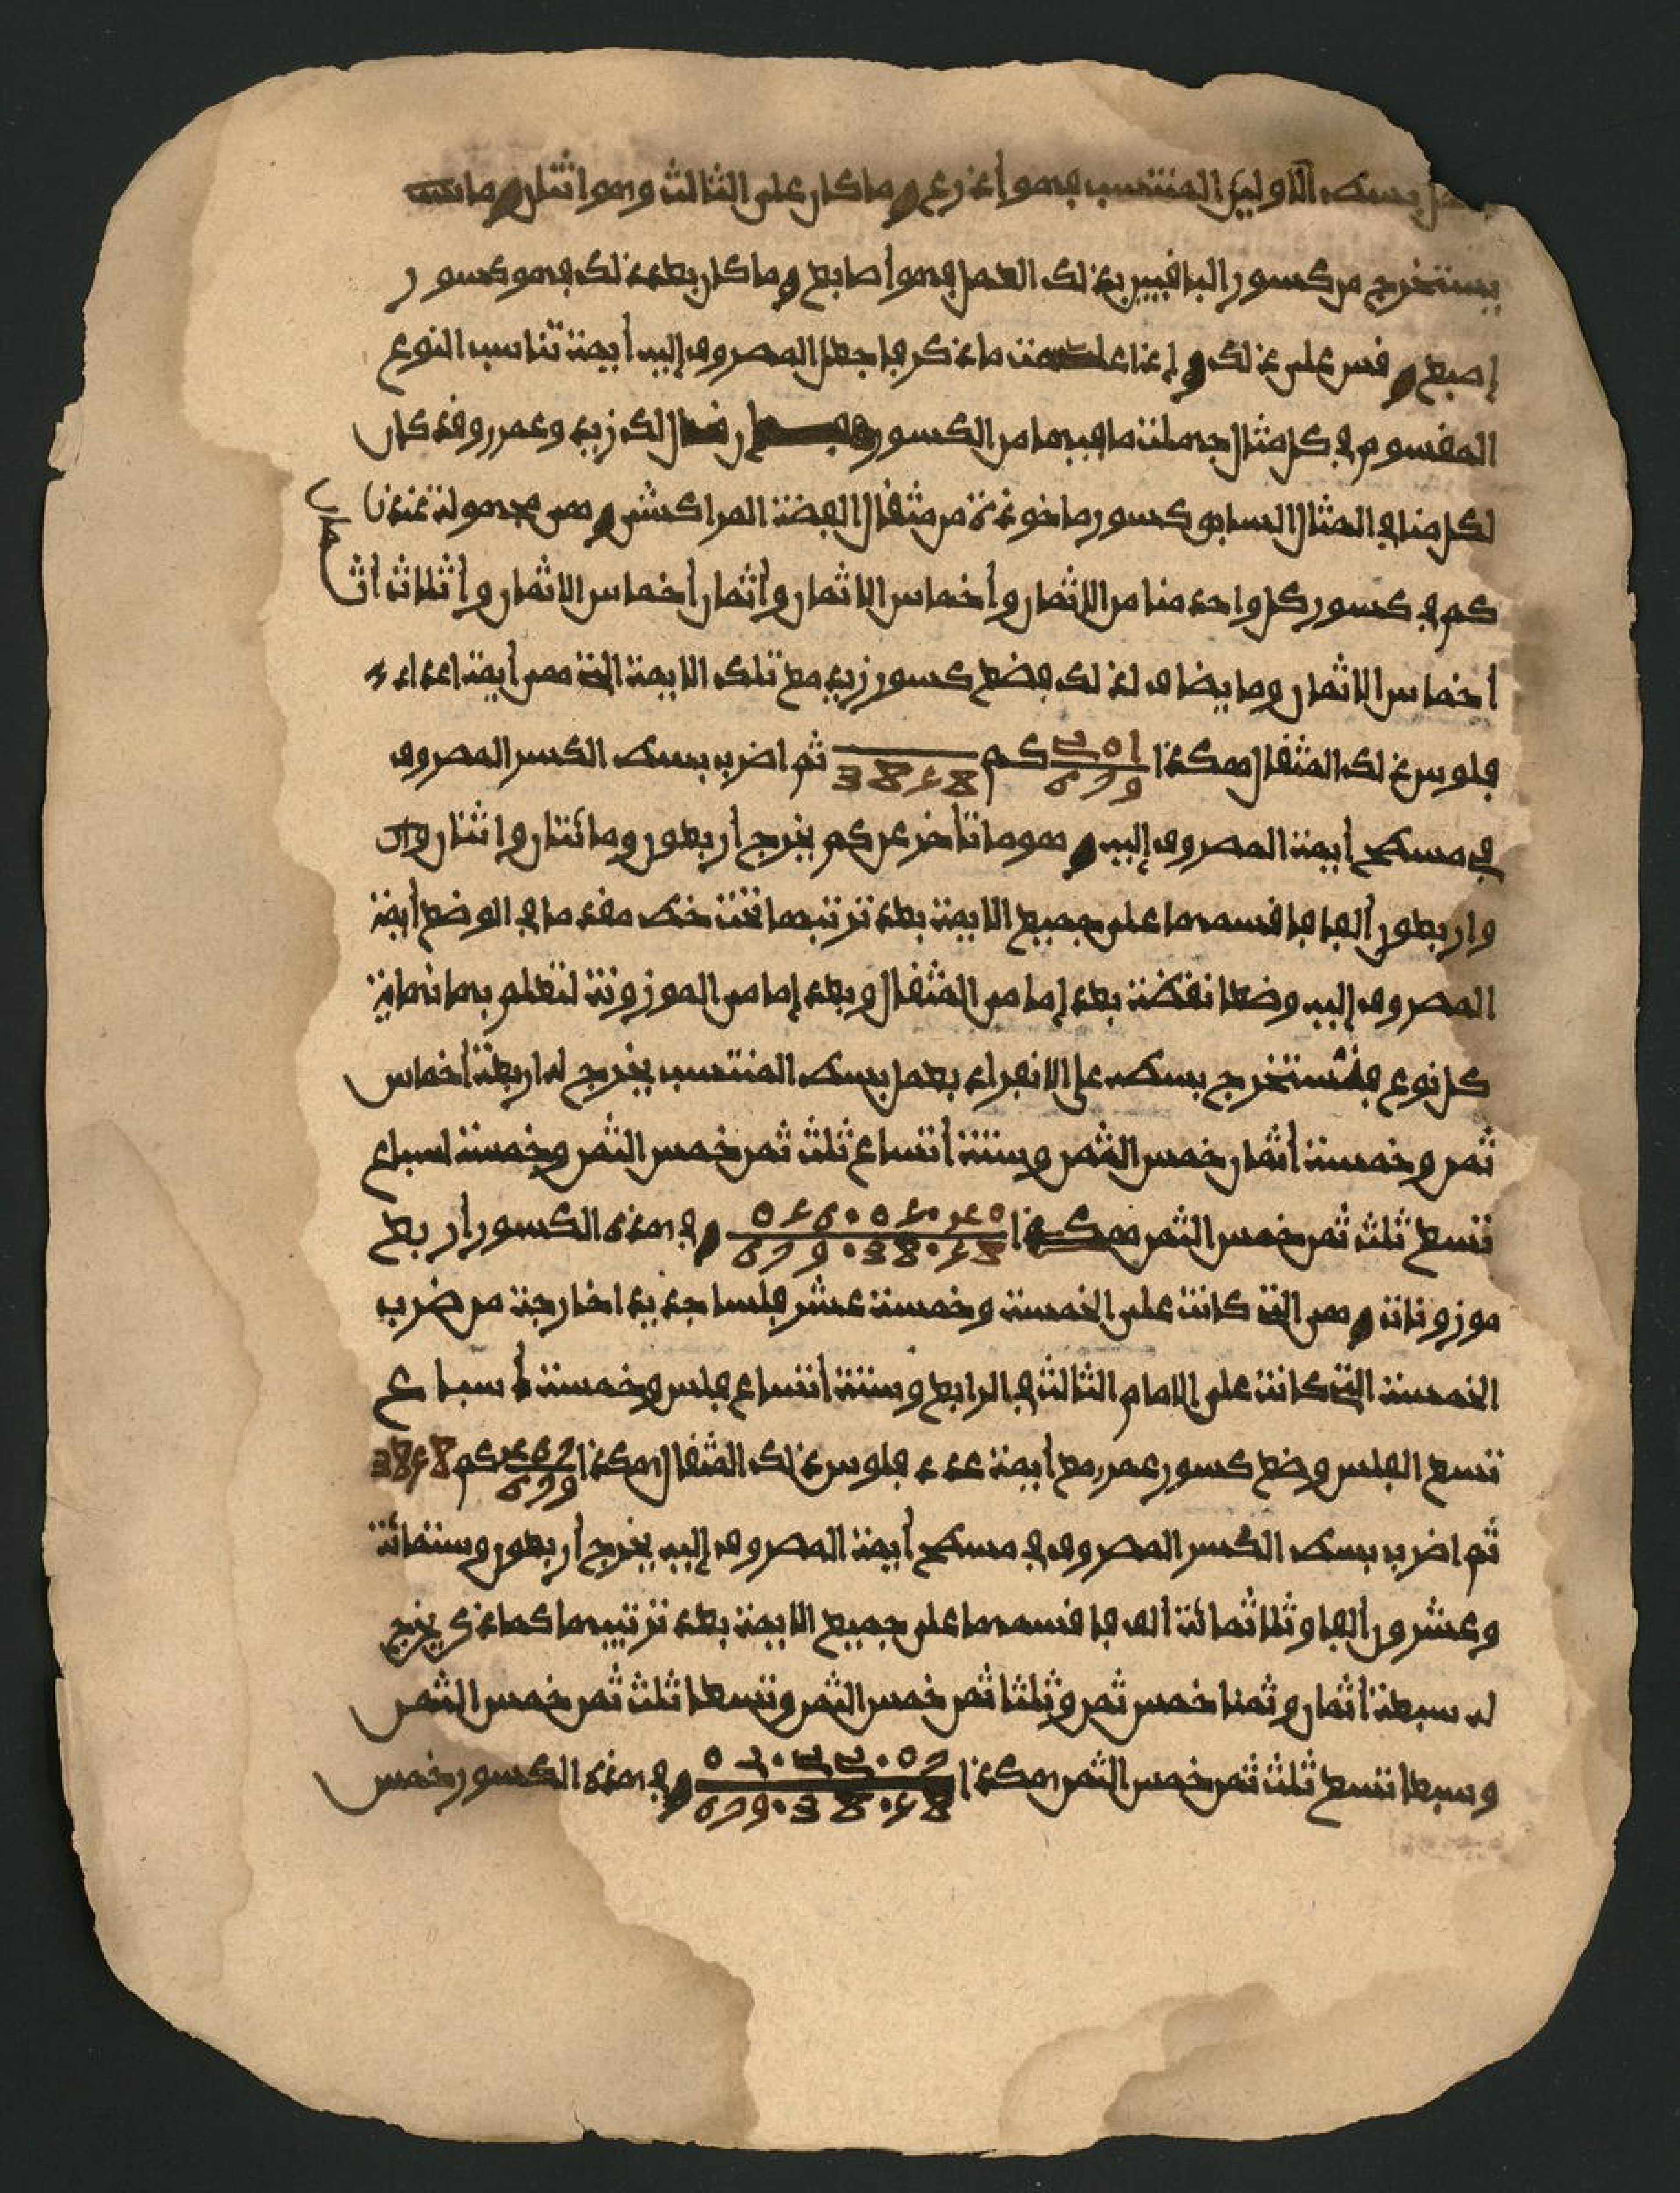 بسط الاوليين المنتسب فهو أذرع وما كان على الثالث وهو اثنان وما
يستخرج من كسور الباقيين بذلك العمل فهو أصابع وما كان بعد ذلك فهو كسور
إصبع وقس على ذلك وإذا علمت ما ذكر فاجعل المصروف إليه أيمة تناسب النوع
المقسوم في كل مثال جهلت ما فيها من الكسور لك زيد وعمر وقد كان
لكل منا في المثال السابق كسور ماخوذة من مثقال الفضة المراكشي وهي مجهولة عندنا
كم في كسور كل واحد منا من الاثمان وأخماس الاثمان وأثمان أخماس الاثمان وأثلاث أث
أخماس الاثمان وما يضاف لذلك فضع كسور زيد مع تلك الايمة التي هي أيمة اعداد
فلوس ذلك المثقال هكذا كم 3858 ثم اضرب بسط الكسر المصروف
في مسطح أيمة المصروف إليه وهو ما تأخر عن كم يخرج أربعون ومائتان واثنان وا
واربعون ألفا فاقسمها على جميع الايمة بعد ترتيبها تحت خط مقدما في الوضع أيمة
المصروف إليه وضعا نقطة بعد إمامي المثقال وبعد إمامي الموزونة لتعلم بها نهاية
كل نوع فتستخرج بسطه على الانفراد بعمل بسط المنتسب يخرج له اربعة أخماس
ثمن وخمسة أثمان خمس الثمن وستة أتساع ثلث ثمن خمس الثمن وخمسة اسباع
تسع ثلث ثمن خمس الثمن هكذا وفي هذه الكسور اربع
موزونات وهي التي كانت على الخمسة وخمسة عشر فلسا جديدا خارجة من ضرب
الخمسة التي كانت على الامام الثالث في الرابع وستة أتساع فلس وخمسة أسباع
تسع الفلس وضع كسور عمر مع أيمة عدد فلوس ذلك المثقال هكذا كم 3858
ثم اضرب بسط الكسر المصروف في مسطح أيمة المصروف إليه يخرج أربعون وستمائة
وعشرون ألفا وثلاثمائة ألف فاقسمها على جميع الايمة بعد ترتيبها كما ذكر يخرج
له سبعة أثمان وثمنا خمس ثمن وثلثا ثمن خمس الثمن وتسعا ثلث ثمن خمس الثمن
وسبعا تسع ثلث ثمن خمس الثمن هكذا وفي هذه الكسور خمس